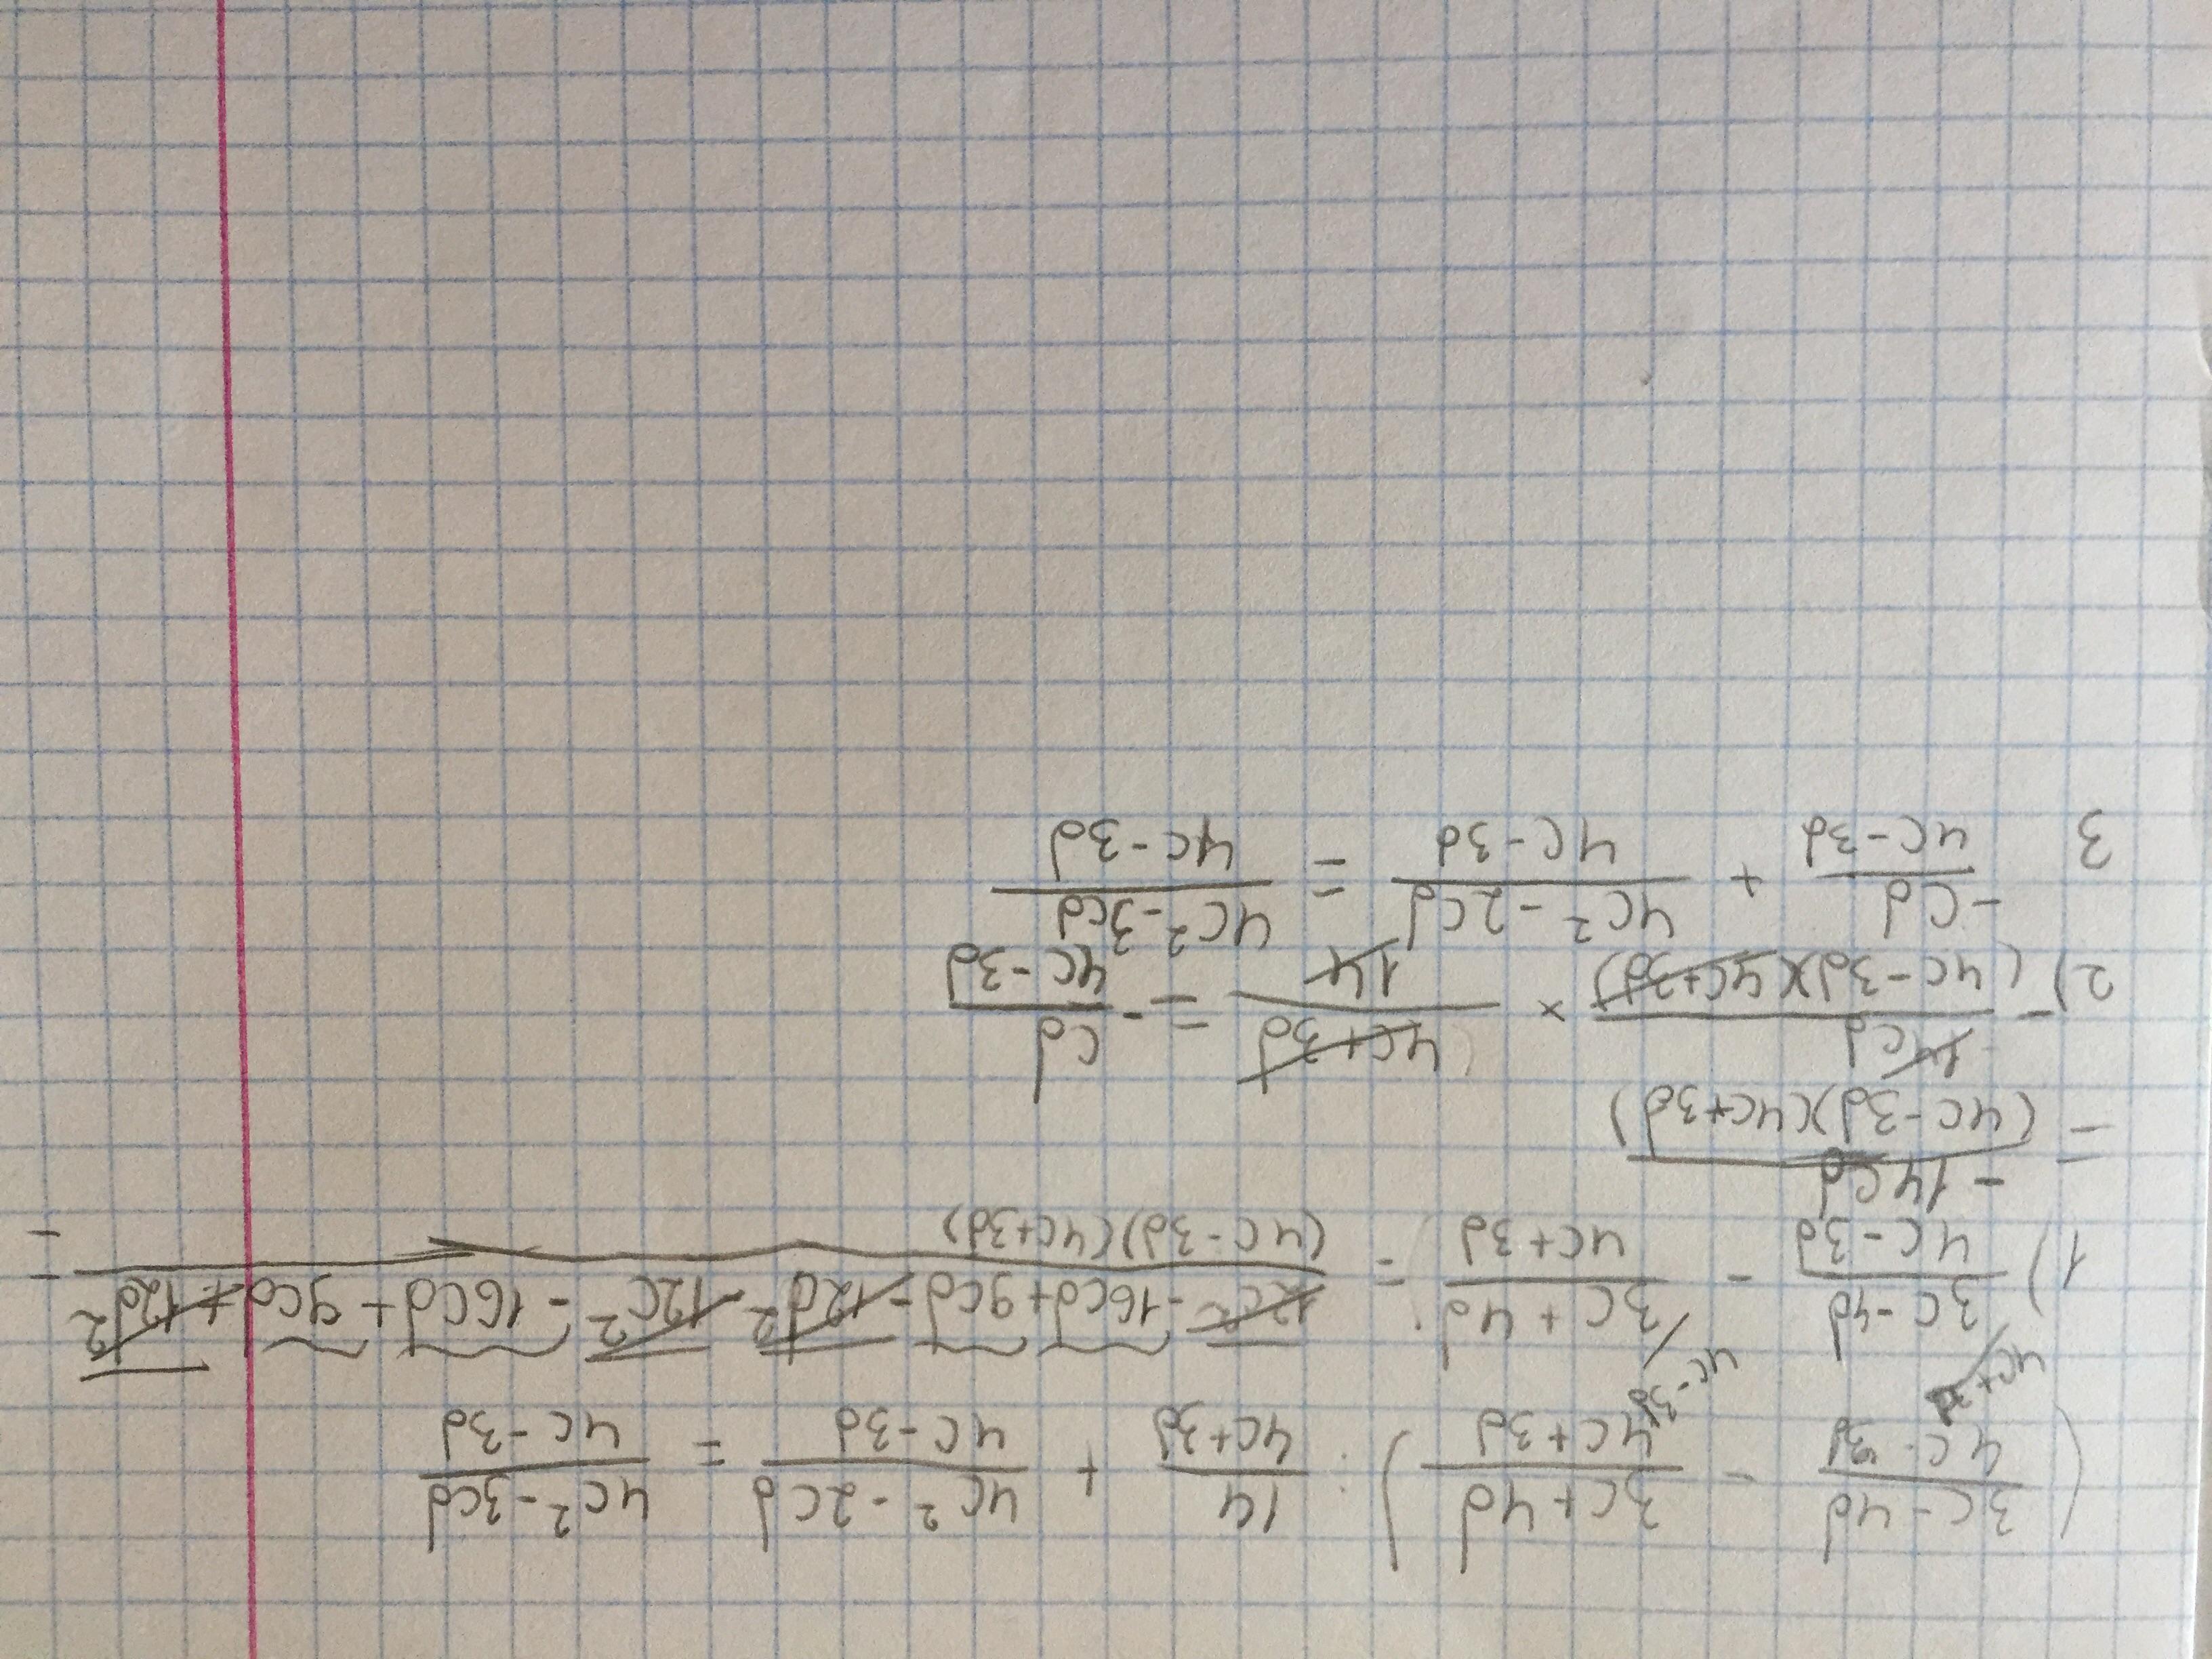 ( (3c-4d)/(4c-3d) - (3c+4d)/(4c+3d) ) : 14/(4c+3d) + (4c²-2cd)/(4c-3d) = (4c²-3cd)/(4c-3d)
4c+3d 4c-3d
1) (3c-4d)/(4c-3d) - (3c+4d)/(4c+3d) = (12c²-16cd+9cd-12d²-12c²-16cd+9cd+12d²)/((4c-3d)(4c+3d)) =
= -14cd/((4c-3d)(4c+3d))
2) - 14cd/((4c-3d)(4c+3d)) × (4c+3d)/14 = - cd/(4c-3d)
3 -cd/(4c-3d) + (4c²-2cd)/(4c-3d) = (4c²-3cd)/(4c-3d)